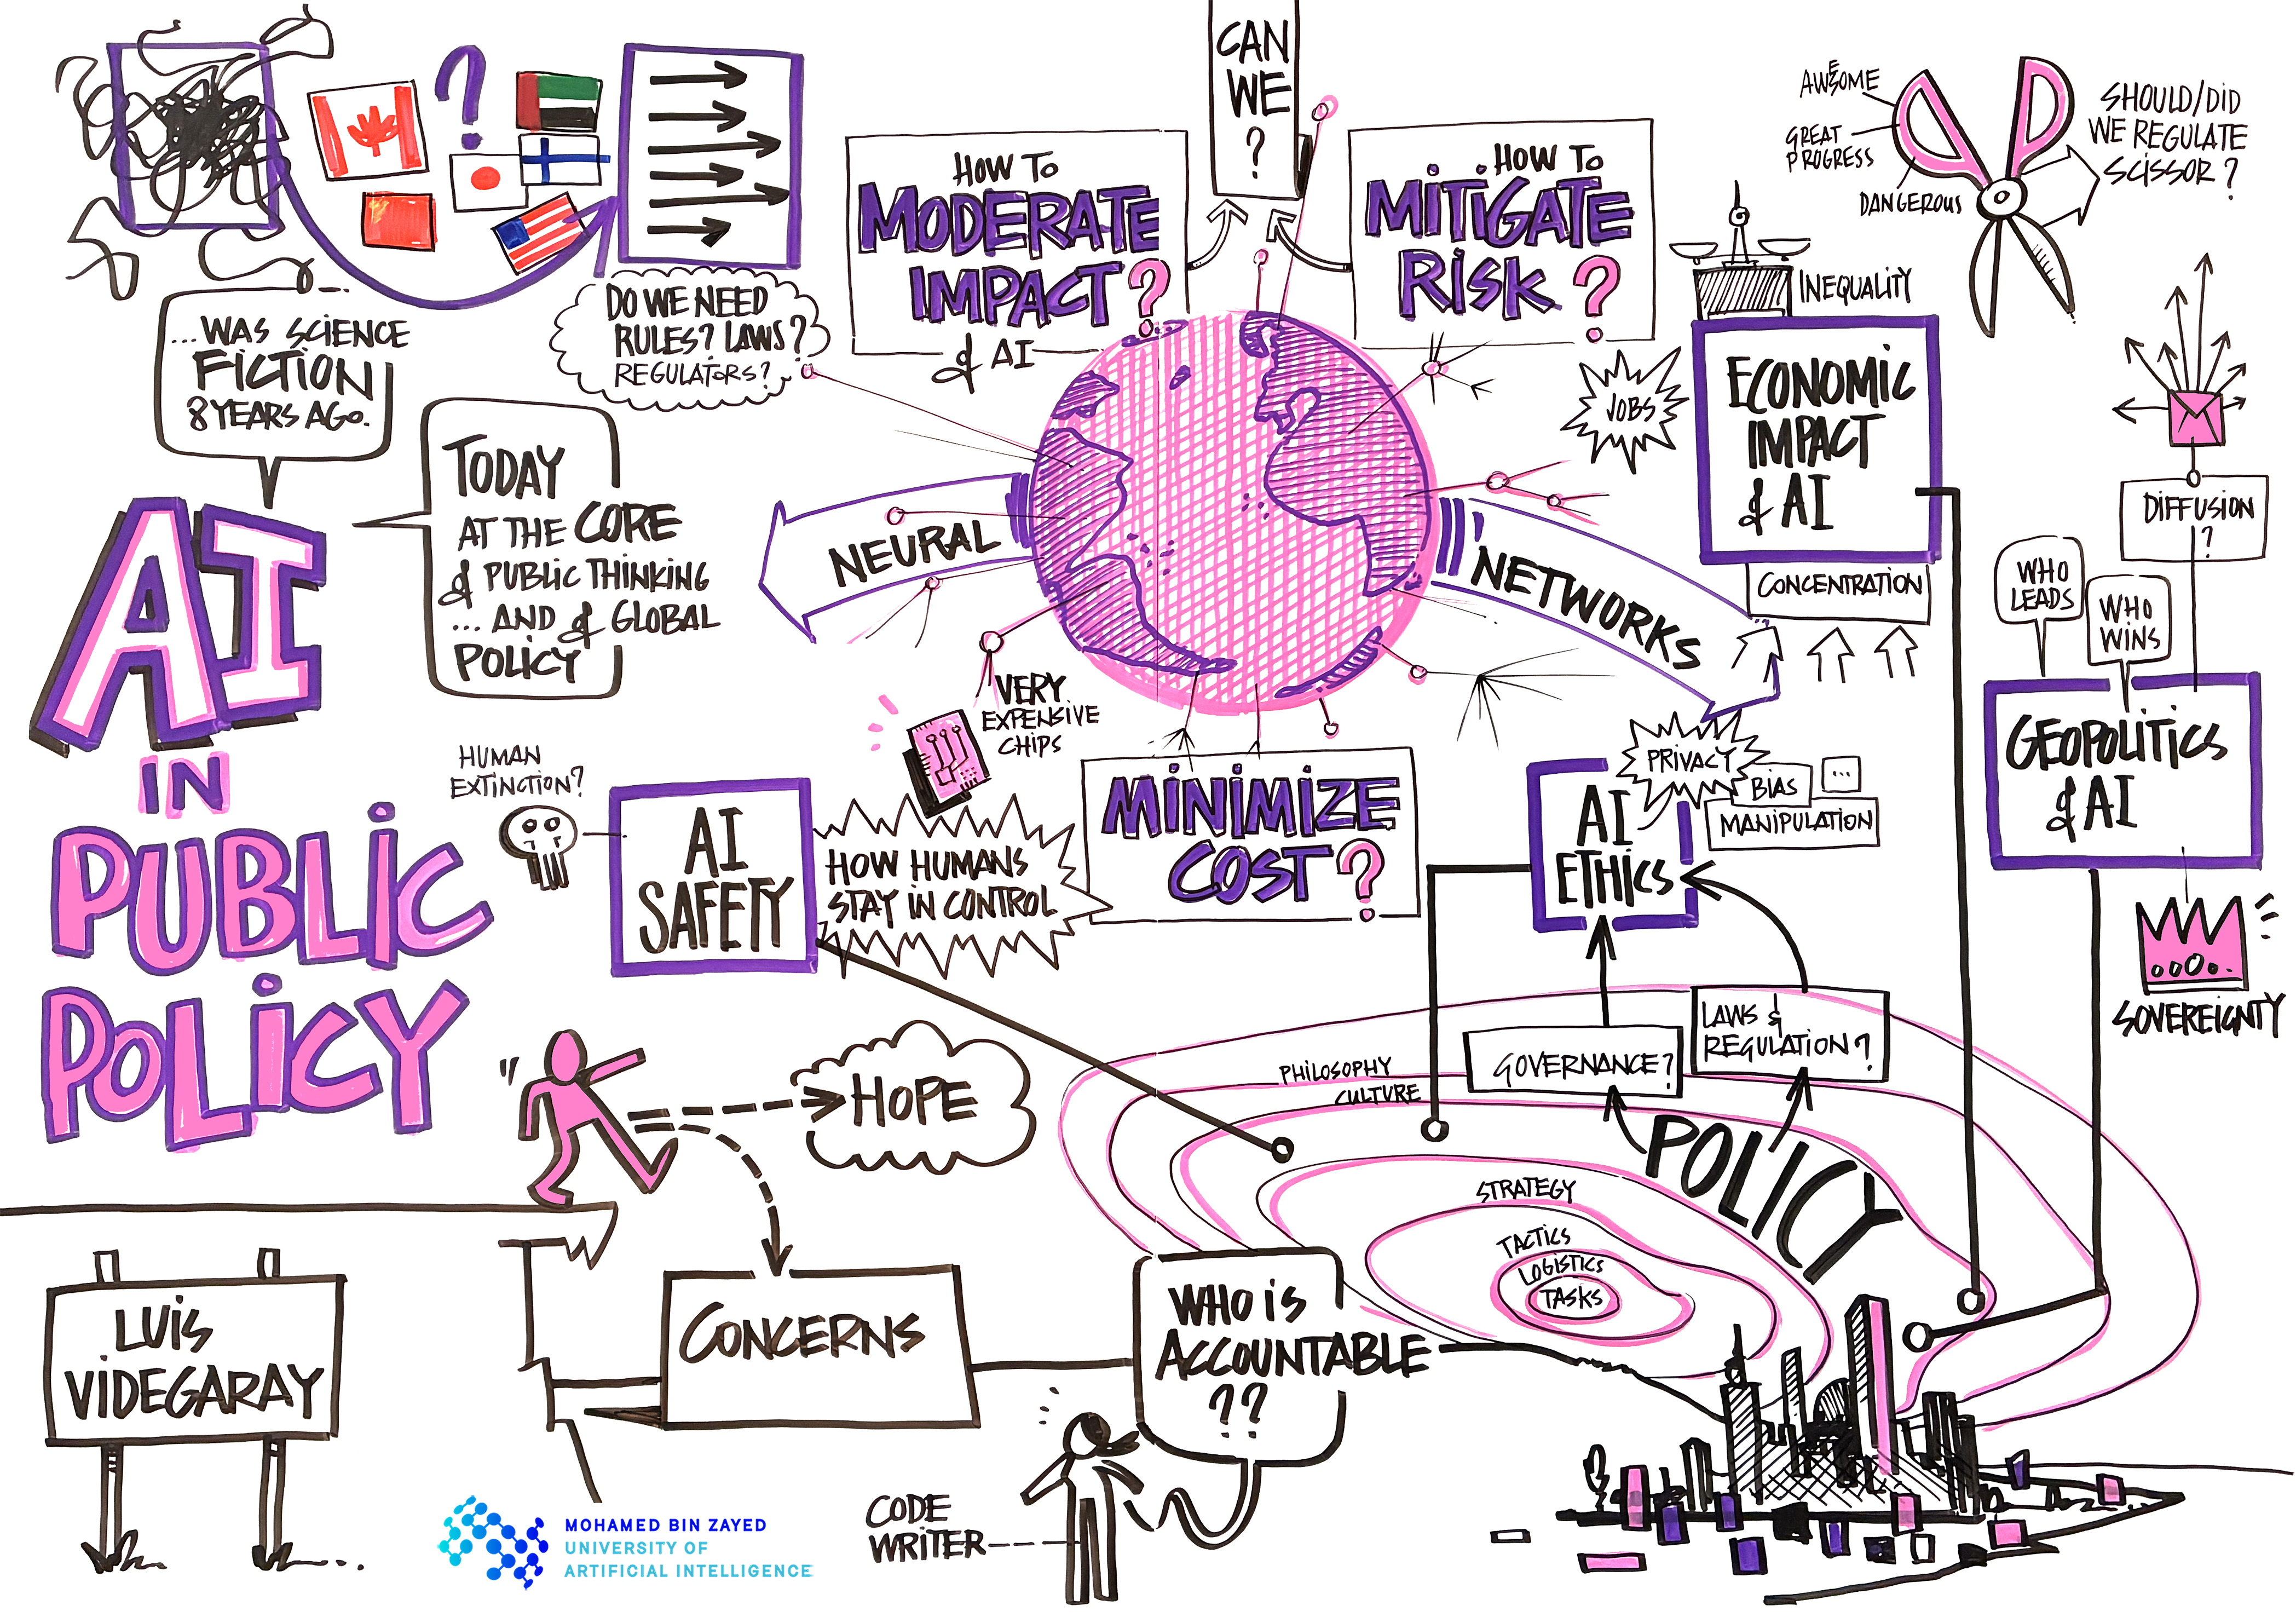 ...WAS SCIENCE
FICTION
8 YEARS AGO.
TODAY
AT THE CORE
of PUBLIC THINKING
... AND of GLOBAL
POLICY
AI
IN
PUBLIC
POLICY
LUIS
VIDEGARAY
?
DO WE NEED
RULES? LAWS?
REGULATORS?
HOW TO
MODERATE
IMPACT?
of AI
CAN
WE
?
HOW TO
MITIGATE
RISK?
NEURAL
NETWORKS
VERY
EXPENSIVE
CHIPS
MINIMIZE
COST?
HUMAN
EXTINCTION?
AI
SAFETY
HOW HUMANS
STAY IN CONTROL
HOPE
CONCERNS
WHO IS
ACCOUNTABLE
??
CODE
WRITER
MOHAMED BIN ZAYED
UNIVERSITY OF
ARTIFICIAL INTELLIGENCE
AWESOME
GREAT
PROGRESS
DANGEROUS
SHOULD/DID
WE REGULATE
SCISSOR?
INEQUALITY
JOBS
ECONOMIC
IMPACT
of AI
CONCENTRATION
DIFFUSION
?
WHO
LEADS
WHO
WINS
GEOPOLITICS
of AI
SOVEREIGNTY
PRIVACY
BIAS
...
MANIPULATION
AI
ETHICS
LAWS &
REGULATION?
GOVERNANCE?
PHILOSOPHY
CULTURE
POLICY
STRATEGY
TACTICS
LOGISTICS
TASKS